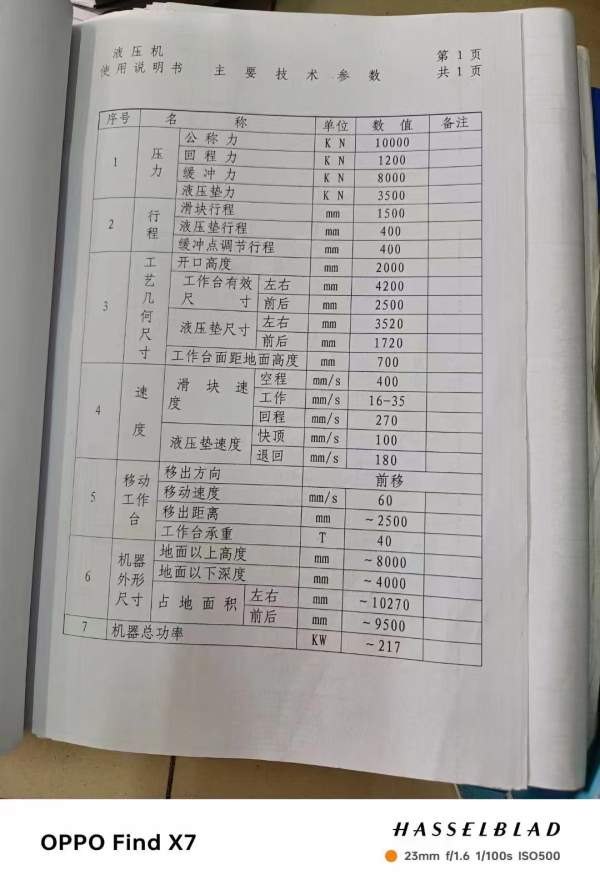 液压机 第 1 页
使用说明书 主要技术参数 共 1 页
序号 名称 单位 数值 备注
1 压力 公称力 KN 10000
回程力 KN 1200
缓冲力 KN 8000
液压垫力 KN 3500
2 行程 滑块行程 mm 1500
液压垫行程 mm 400
缓冲点调节行程 mm 400
3 工艺几何尺寸 开口高度 mm 2000
工作台有效尺寸 左右 mm 4200
前后 mm 2500
液压垫尺寸 左右 mm 3520
前后 mm 1720
工作台面距地面高度 mm 700
4 速度 滑块速度 空程 mm/s 400
工作 mm/s 16-35
回程 mm/s 270
液压垫速度 快顶 mm/s 100
退回 mm/s 180
5 移动工作台 移出方向 前移
移动速度 mm/s 60
移出距离 mm ~2500
工作台承重 T 40
6 机器外形尺寸 地面以上高度 mm ~8000
地面以下深度 mm ~4000
占地面积 左右 mm ~10270
前后 mm ~9500
7 机器总功率 KW ~217
OPPO Find X7 HASSELBLAD
23mm f/1.6 1/100s ISO500